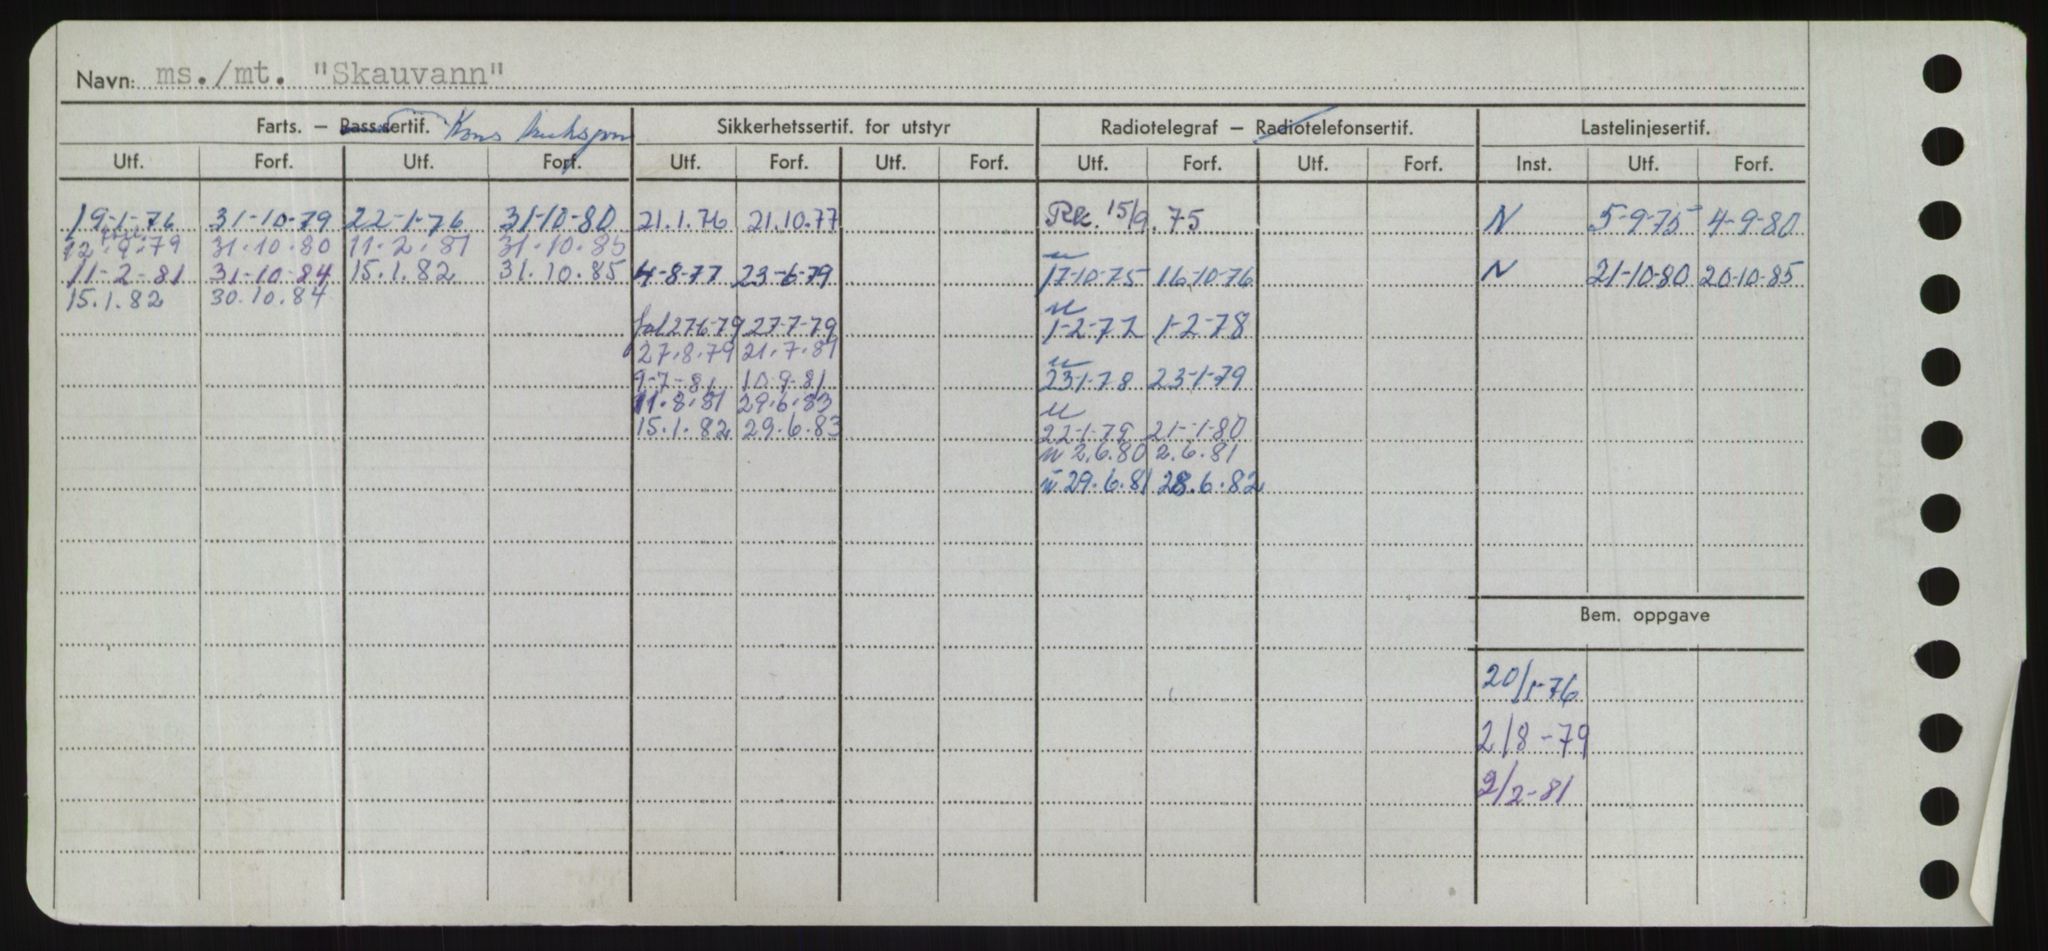 Navn: ms./mt. "Skauvann"
Farts. – Passsertif. Kons Sikkerhetssertif. for utstyr Radiotelegraf – Radiotelefonsertif. Lastelinjesertif.
Utf. Forf. Utf. Forf. Utf. Forf. Utf. Forf. Utf. Forf. Utf. Forf. Inst. Utf. Forf.
19-1-76 31-10-79 22-1-76 31-10-80 21.1.76 21.10.77 Rk. 15/9.75 N 5-9-75 4-9-80
12.9.79 31.10.80 11.2.81 31.10.85
11-2-81 31-10-84 15.1.82 31.10.85 4-8-77 23-6-79 17-10-75 16-10-76 N 21-10-80 20-10-85
15.1.82 30.10.84
27-6-79 27-7-79 1-2-77 1-2-78
27.8.79 21.7.81
9-7-81 10.9.81 23-1-78 23-1-79
11.8.81 29.6.83
15.1.82 29.6.83 22-1-79 21-1-80
2.6.80 2.6.81
29.6.81 28.6.82
Bem. oppgave
20/1-76
2/8-79
2/2-81